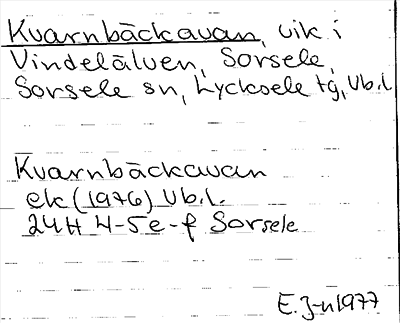 Kvarnbäckavan, vik i
Vindelälven, Sorsele,
Sorsele sn, Lycksele tg, Vb.l.
Kvarnbäckavan
ek (1976) Vb.l.
24H 4-5e-f Sorsele
E. J-n 1977